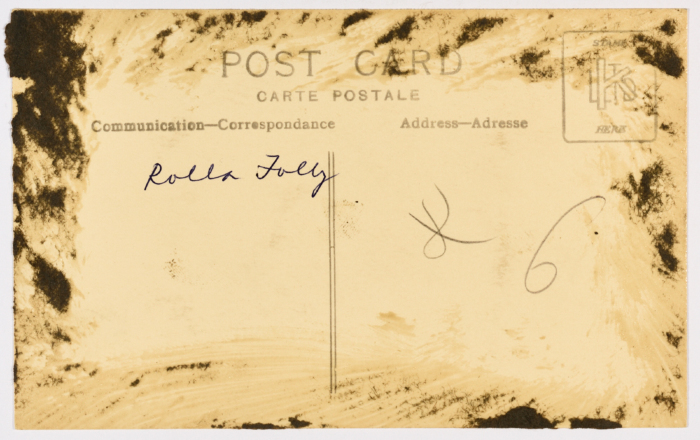 POST CARD
CARTE POSTALE
Communication—Correspondance
Address—Adresse
STAMP
HERE
Rolla Folly
6